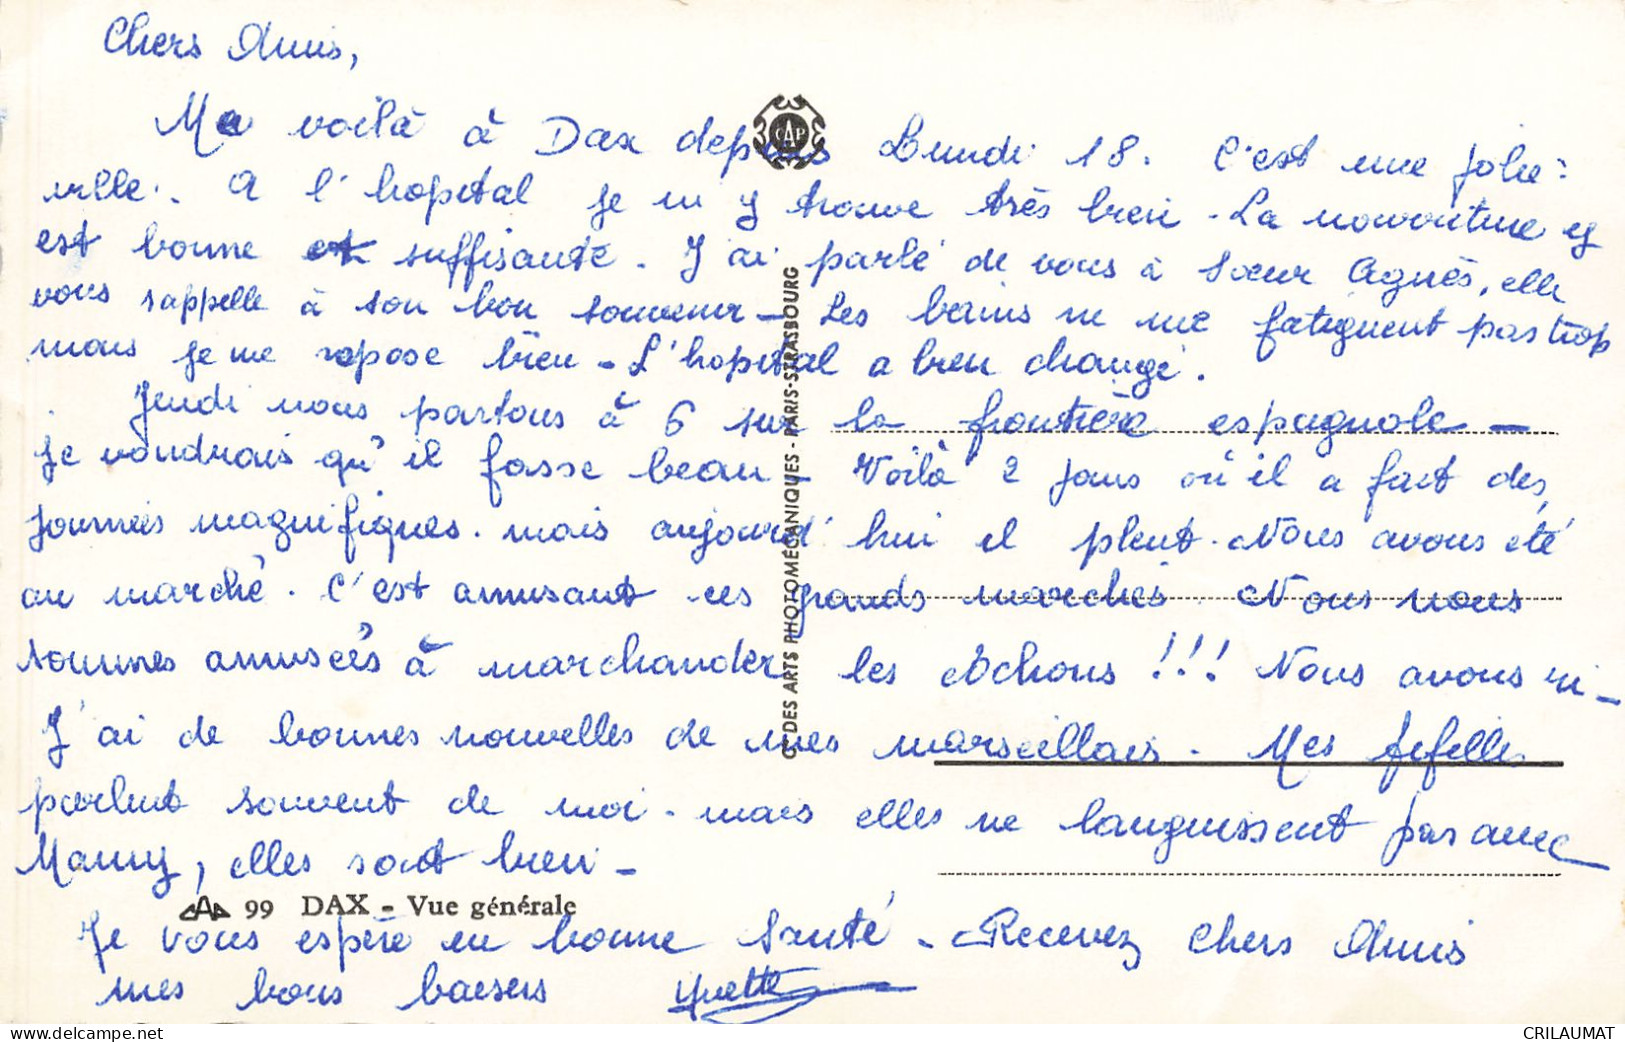 Chers Amis,
Me voilà à Dax depuis Lundi 18. C'est une jolie
ville. A l'hopital je m'y trouve très bien. La nourriture y
est bonne et suffisante. J'ai parlé de vous à Sœur Agnès, elle
vous rappelle à son bon souvenir - Les bains ne me fatiguent pas trop
mais je me repose bien - L'hopital a bien changé.
Jeudi nous partons à 6 sur la frontière espagnole -
Je voudrais qu'il fasse beau - Voilà 2 jours où il a fait des
journées magnifiques. mais aujourd'hui il pleut. Nous avons été
au marché. C'est amusant ces grands marchés. Nous nous
sommes amusées à marchander les cochons !!! Nous avons ri -
J'ai de bonnes nouvelles de mes marseillais. Mes fifilles
parlent souvent de moi. mais elles ne languissent pas avec
Mamy, elles sont bien -
CAP 99 DAX - Vue générale
Je vous espère en bonne santé - Recevez Chers Amis
mes bons baisers Yvette
CAP
Cie DES ARTS PHOTOMÉCANIQUES - PARIS-STRASBOURG
www.delcampe.net
CRILAUMAT